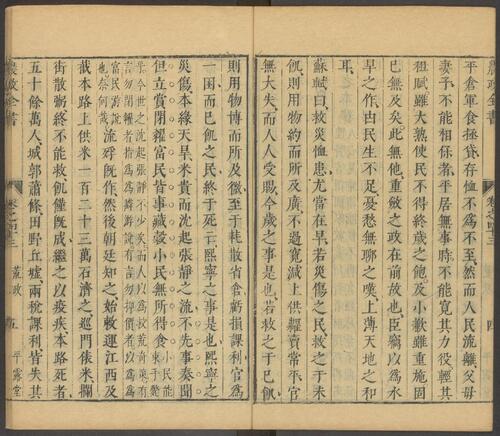 農政全書
平倉軍食拯貸存恤不爲不至然而人民流離父母
妻子不能相保者平居無事時不能寬其力役輕其
租賦雖大熟使民不得終歲之飽及小歉雖重施固
已無及矣此無他重斂之政在前故也臣竊以爲水
旱之作由民生不足憂愁無聊之嘆上薄天地之和
耳
蘇軾曰救災恤患尤當在早若災傷之民救之于未
飢則用物約而所及廣不過寬減上供糶賣常平官
無大失而人人受賜今歲之事是也若救之于已飢
則用物博而所及微至于耗散省倉虧損課利官爲
一困而已飢之民終于死亡熙寧之事是也熙寧之
災傷本緣天旱米貴而沈起張靚之流不先事奏聞
但立賞閉糴富民皆爭藏穀小民無所得食小民能
乎今世之沈起張靚不少矣而人以爲救荒奇策有
言勿閉糴者指爲游說有言勿抑價者以爲爲
富民游說
也奈何哉
流殍既作然後朝廷知之始敕運江西及
截本路上供米一百二十三萬石濟之巡門俵米攔
街散粥終不能救飢饉既成繼之以疫疾本路死者
五十餘萬人城郭蕭條田野丘墟兩稅課利皆失其
農政全書 卷之四十三 荒政 五 平露堂